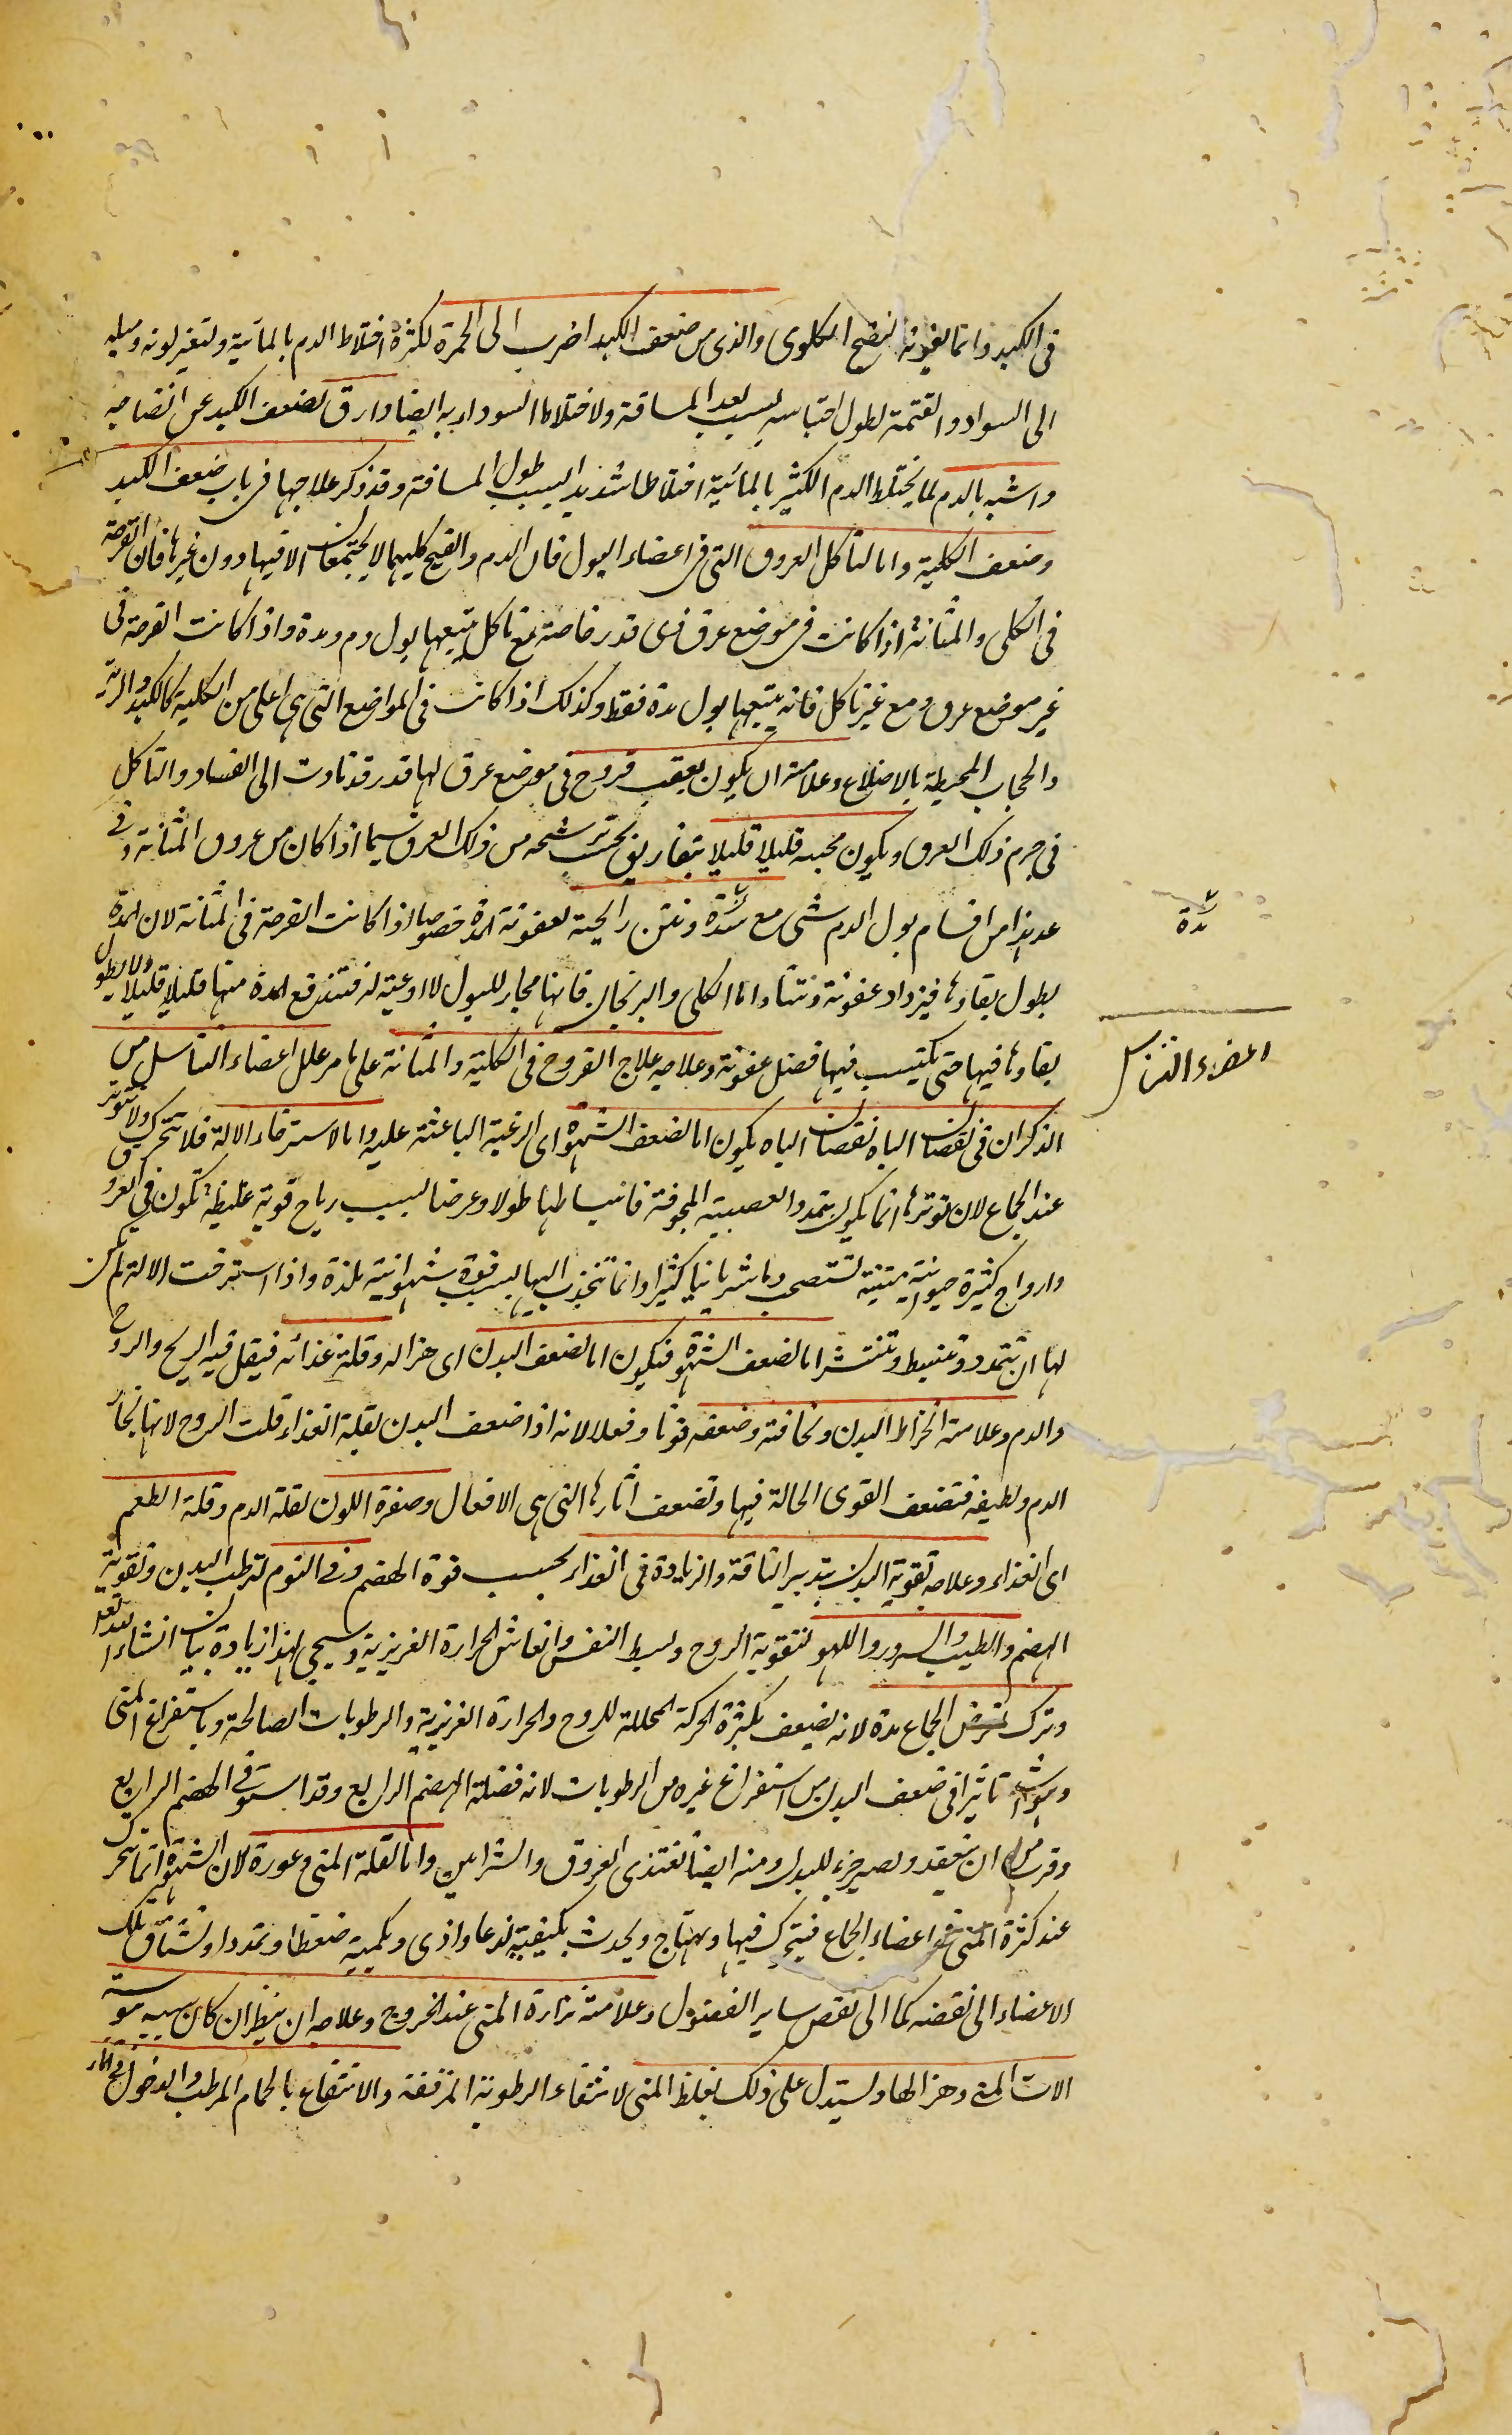 فى الكبد وانما لقوته النضج الكلوى والذى من ضعف الكبد اضرب الى الحمرة لكثرة اختلاط الدم بالمائية ولتغير لونه وميله
الى السواد والقتمة لطول احتباسه بسبب بعد المسافة ولاختلاط السوداء به ايضا وارق لضعف الكبد عن انضاجه
واشبه بالدم لما يختلط الدم الكثير بالمائية اختلاطا شديدا لسبب طول المسافة وقد ذكر علاجها فى باب ضعف الكبد
وضعف الكلية واما لتاكل العروق التى فى اعضاء البول فان الدم والقيح كليهما لا يجتمعان الا فيها دون غيرها فان القرحة
فى الكلى والمثانة اذا كانت فى موضع عرق ذى قدر خاصة مع تاكل يتبعها بول دم ومدة واذا كانت القرحة فى
غير موضع عرق ومع غير تاكل فانه يتبعها بول مدة فقط وكذلك اذا كانت فى المواضع التى هى اعلى من الكلية كالكبد والرية
والحجاب المحيطة بالاضلاع وعلامته ان يكون بعقب قروح فى موضع عرق لها قدر قد تادت الى الفساد والتاكل
فى جرم ذلك العرق ويكون مجيه قليلا قليلا بتفاريق بحسب ترشحه من ذلك العرق سيما اذا كان من عروق المثانة وفى
عد هذا من اقسام بول الدم شى مع مدة ونتن رايحة لعفونة المدة خصوصا اذا كانت القرحة فى المثانة لان المدة
مدة
يطول بقاوها فيزداد عفونة ونتنا واما الكلى والبربخان فانها مجار للبول لا اوعية له فتندفع المدة منها قليلا قليلا ولا يطول
بقاوها فيها حتى يكتسب فيها فضل عفونة وعلاجه علاج القروح فى الكلية والمثانة على ما مر علل اعضاء التناسل من
اعضاء التناسل
الذكران فى نقصان الباه نقصان الباه يكون اما لضعف الشهوة اى الرغبة الباعثة عليه واما لاسترخاء الالة فلا تتحرك ولا تتوتر
عند الجماع لان توترها انما يكون بتمدد العصبة المجوفة وانبساطها طولا وعرضا لسبب رياح قوية غليظة تكون فى العروق
وارواح كثيرة حيوانية متينة تستصحب دما شريانيا كثيرا وانما تنجذب اليها بسبب قوة شهوانية بلذة واذا استرخت الالة لم يمكن
لها ان تتمدد وتنبسط وتنتشر اما لضعف الشهوة فيكون اما لضعف البدن اى هزاله وقلة غذائه فيقل فيه الريح والروح
والدم وعلامته انخراط البدن ونحافته وضعفه قوتا وفعلا لانه اذا ضعف البدن لقلة الغذاء قلت الروح لانها بخار
الدم ولطيفه فتضعف القوى الحالة فيها وتضعف اثارها التى هى الافعال وصفرة اللون لقلة الدم وقلة الطعم
اى الغذاء وعلاجه تقوية البدن بتدبير الناقة والزيادة فى الغذاء بحسب قوة الهضم وفى النوم لترطيب البدن وتقوية
الهضم والطيب والسرور واللهو لتقوية الروح وبسط النفس وانعاش الحرارة الغريزية وسيجى لهذا زيادة بيان انشاء الله تعالى
وترك الجماع مدة لانه يضعف بكثرة الحركة المحللة للروح والحرارة الغريزية والرطوبات الصالحة وباستفراغ المنى
وهو اشد تاثيرا فى ضعف البدن من استفراغ غيره من الرطوبات لانه فضلة الهضم الرابع وقد استوفى الهضم الرابع
وقرب من ان ينعقد ويصير جزء للبدن ومنه ايضا تغتذى العروق والشرايين واما لقلة المنى وعوزه لان الشهوة انما تتحرك
عند كثرة المنى فى اعضاء الجماع فيتحرك فيها ويهتاج ويحدث بكيفيته لذعا واذى وبكميته ضغطا وتمددا وتشتاق تلك
الاعضاء الى نفضه كما الى نفض ساير الفضول وعلامته نزارة المنى عند الخروج وعلاجه ان ينظر ان كان سببه يبوسة
الات المنى وهزالها ويستدل على ذلك بغلظ المنى لانتفاء الرطوبة المرققة والانتفاع بالحمام المرطب والدخول فى الماء